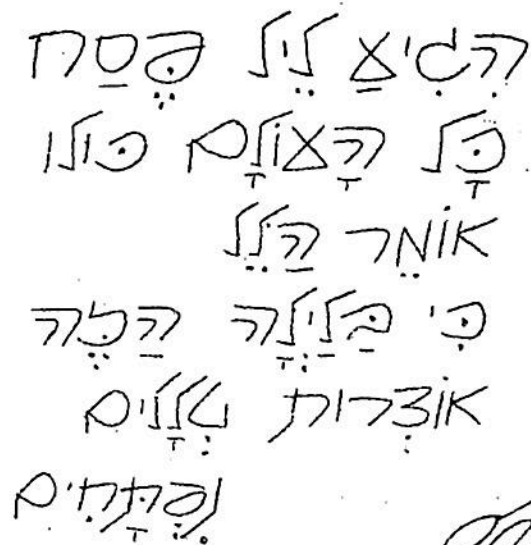 הִגִּיעַ לֵיל פֶּסַח
כָּל הָעוֹלָם כּולו
אוֹמֵר הַלֵּל
כִּי בַּלַּיְלָה הַזֶּה
אוֹצְרות טְלָלים
נִפְתָּחִים